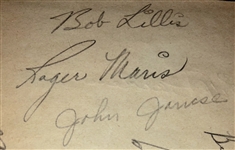 Bob Lillis
Roger Maris
John